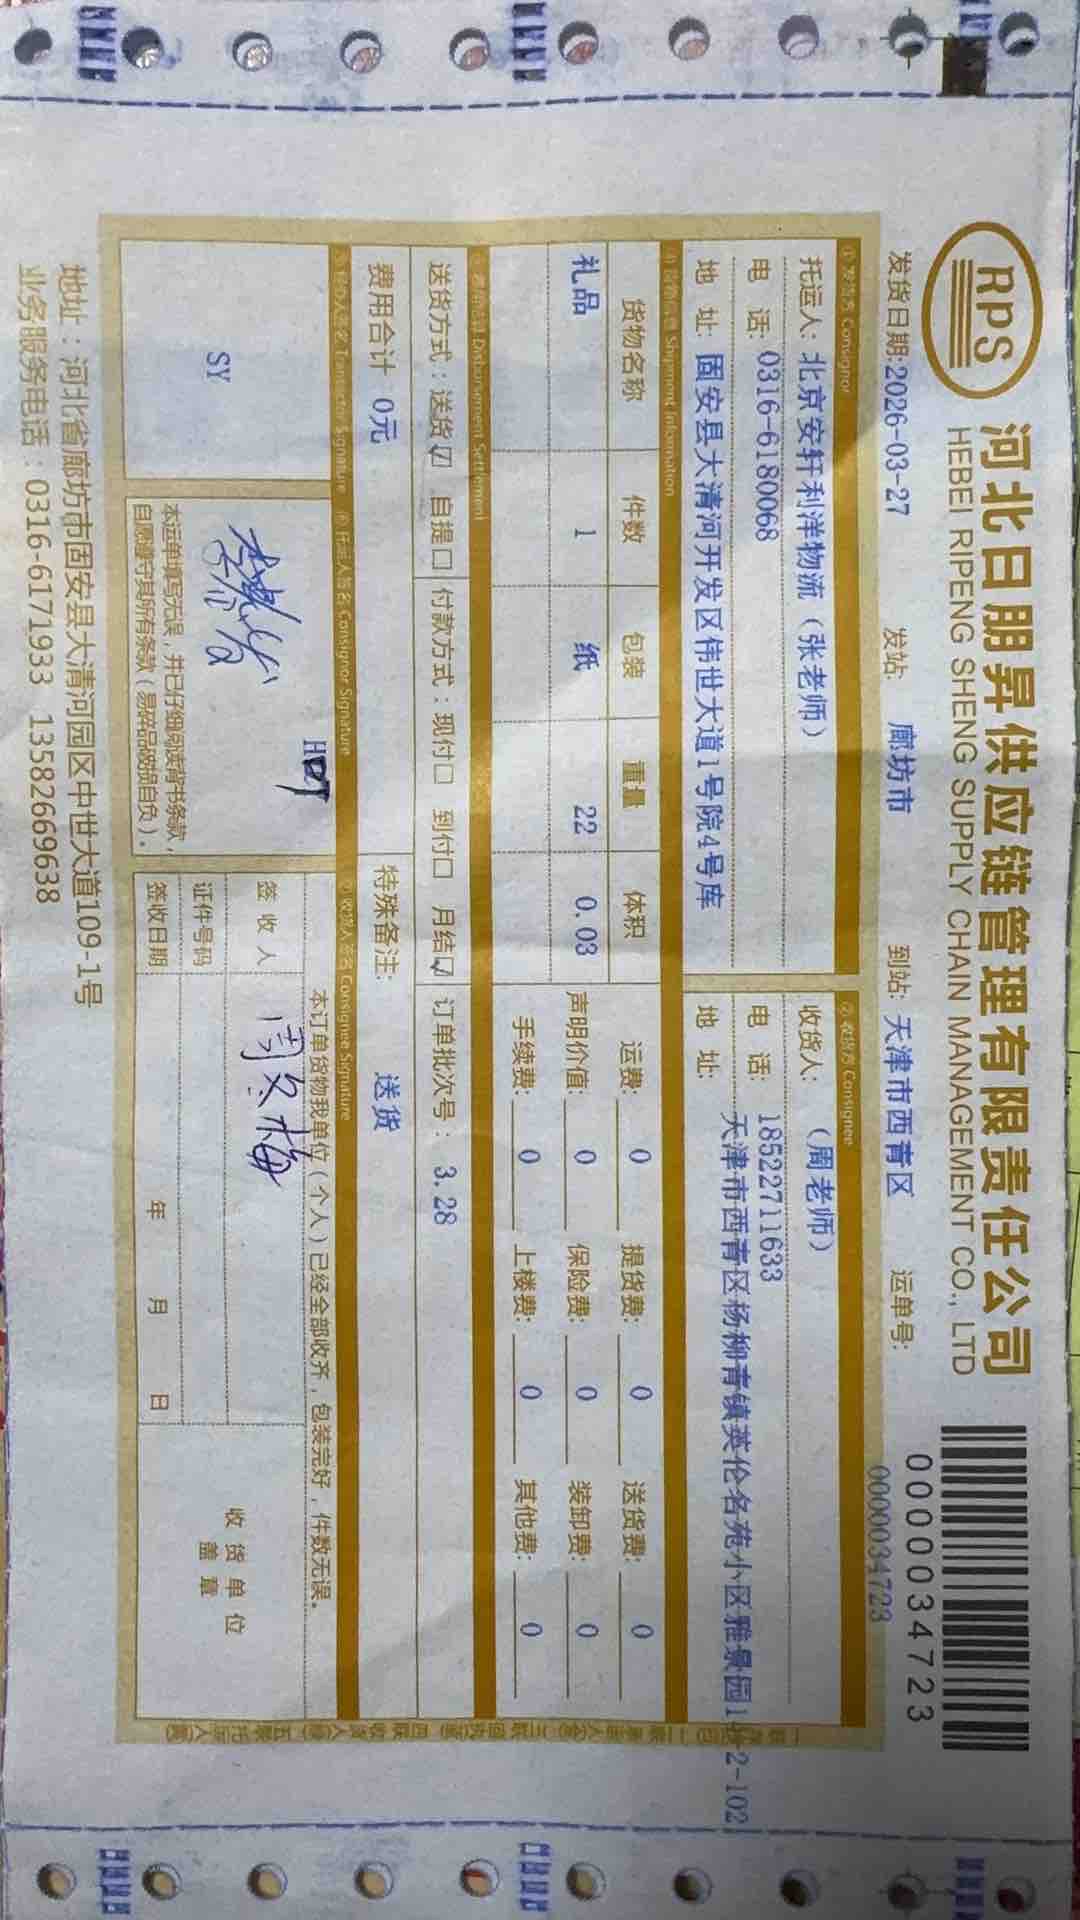 RPS
河北日朋昇供应链管理有限责任公司
HEBEI RIPENG SHENG SUPPLY CHAIN MANAGEMENT CO., LTD
0000034723
0000034723
发货日期:2026-03-27 发站: 廊坊市 到站: 天津市西青区 运单号:
① 发货方 Consignor ② 收货方 Consignee
托运人: 北京安轩利洋物流（张老师） 收货人: （周老师）
电 话: 0316-6180068 电 话: 18522711633
地 址: 固安县大清河开发区伟世大道1号院4号库 地 址: 天津市西青区杨柳青镇英伦名苑小区雅景园1 2-102
Shipment Information
货物名称 件数 包装 重量 体积 运费: 0 提货费: 0 送货费: 0
礼品 1 纸 22 0.03 声明价值: 0 保险费: 0 装卸费: 0
手续费: 0 上楼费: 0 其他费: 0
Disbursement Settlement
送货方式：送货☑ 自提□ 付款方式：现付□ 到付□ 月结☑ 订单批次号： 3.28
费用合计 0元 特殊备注: 送货
Signature Consignor Signature 收货人签名 Consignee Signature
SY
本运单填写无误，并已仔细阅读背书条款，
自愿遵守其所有条款（易碎品破损自负）。
本订单货物我单位（个人）已经全部收齐，包装完好，件数无误。
签 收 人 周文梅
证件号码
签收日期 年 月 日
收货单位
盖 章
地址：河北省廊坊市固安县大清河园区中世大道109-1号
业务服务电话：0316-6171933 13582669638